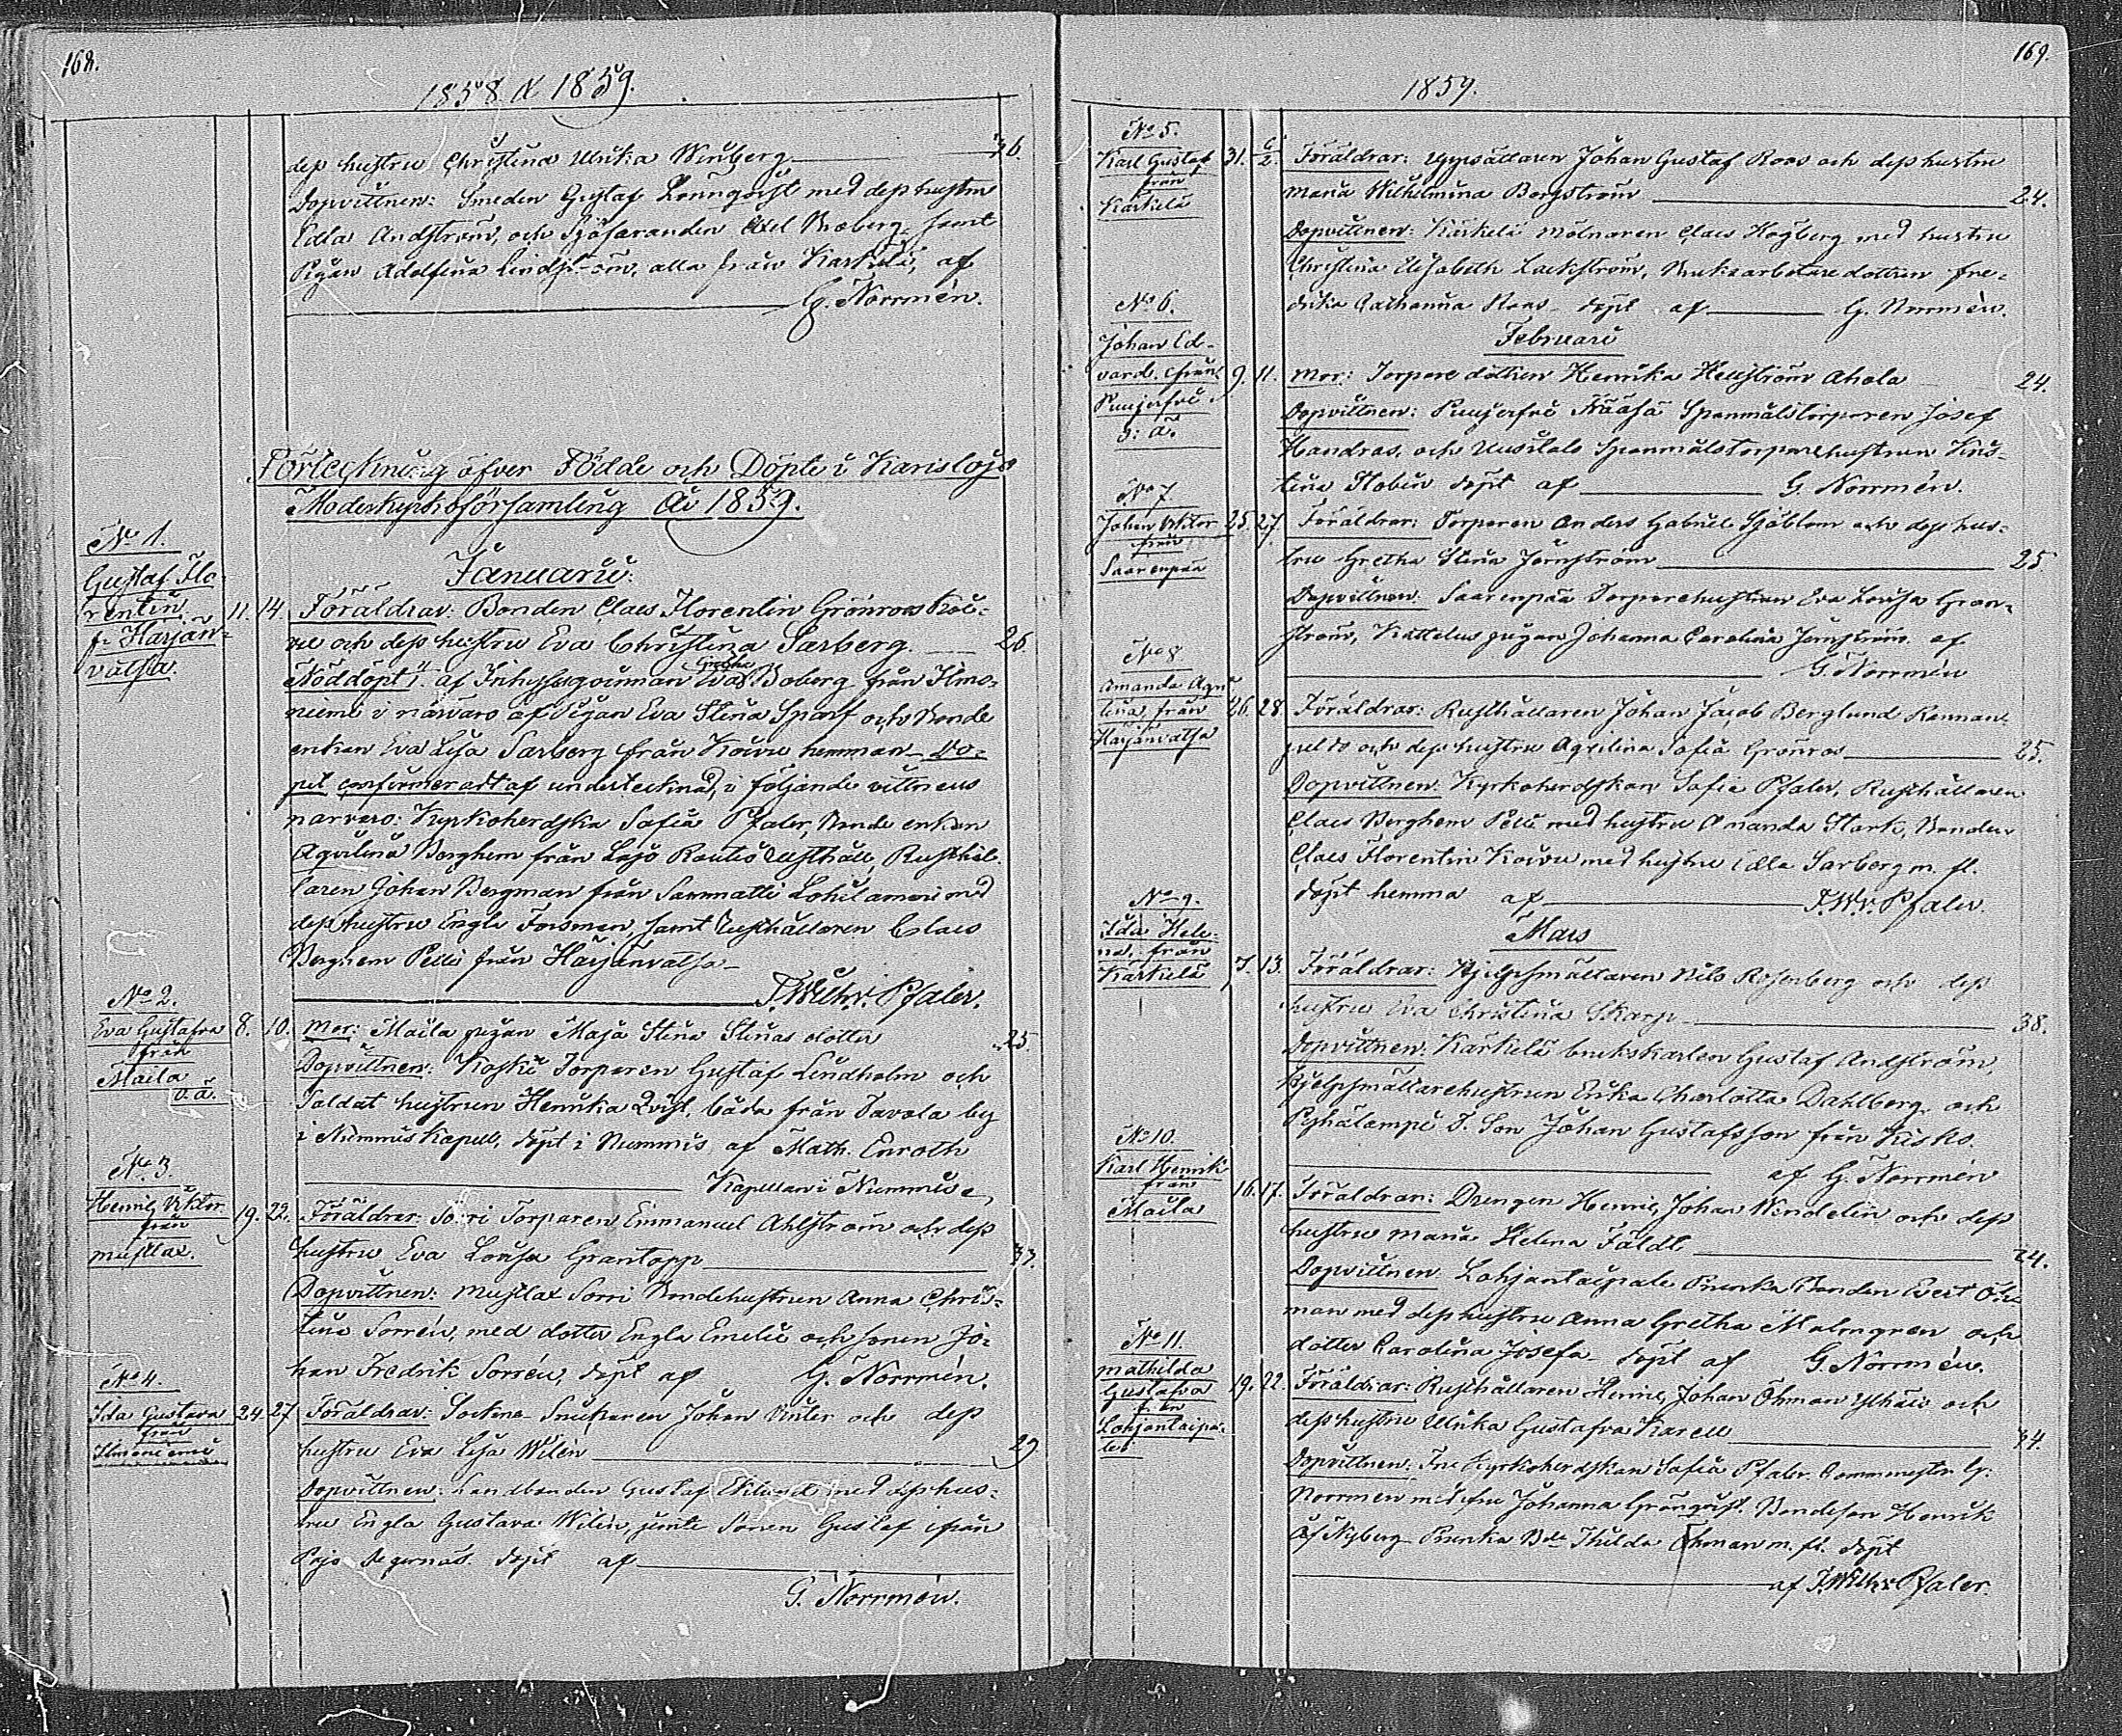 168.
1858 & 1859.
dess hustru Christina Ulrika Winberg 36.
Dopvittnen: Smeden Gustaf Lönnqvist med dess hustru
Edla Andström, och Sjöfaranden Axel Broberg samt
Pigan Adolfina Lindström, alla från Karkela, af
G. Norrmén.
Förteckning öfver Födde och Döpte i Karislojo
Moderkyrkoförsamling År 1859.
Januarii:
No 1.
Gustaf Flo-
rentin
f. Harjan-
vatsa.
11. 14. Föräldrar: Bonden Claes Florentin Grönroos Koi-
vu och dess hustru Eva Christina Sarberg. 26.
Nöddöpt af Inhysesqvinnan Eva Greta Boberg från Ilmo-
niemi i närvaro af Pigan Eva Stina Sparf och Bonde
enkan Eva Lisa Sarberg från Koivu hemman. Do-
pet confirmeradt af undertecknad, i följande vittnens
närvaro: Kyrkoherdska Sofia Pfaler, Bonde enkan
Aqvilina Berghem från Lojo Rautio Rusthåll, Rusthål-
laren Johan Bergman från Sammatti Lohilamani med
dess hustru Engla Forsman, samt Rusthållaren Claes
Berghem Pelli från Harjanvatsa
F. Wilh. v. Pfaler.
No 2.
Eva Gustafva
från
Maila
o. ä.
8. 10. Mor: Maila pigan Maja Stina Stinas dotter 25.
Dopvittnen: Koski Torparen Gustaf Lindholm och
Soldat hustrun Henrika Qvist, båda från Tavola by
i Nummis Kapell, döpt i Nummis af Math. Enroth
Kapellan i Nummis
No 3.
Henric Viktor
från
Mustlax.
19. 22. Föräldrar: Sorri Torparen Emmanuel Ahlström och dess
hustru Eva Lovisa Grantopp 33.
Dopvittnen: Mustlax Sorri Bondehustrun Anna Chris-
tina Sorrén, med dotter Engla Emelie och sonen Jo-
han Fredrik Sorrén, döpt af G. Norrmén.
No 4.
Ida Gustava
från
Ilmoniemi
24. 27. Föräldrar: Sockne Snickaren Johan Vinter och dess
hustru Eva Lisa Wilén 29.
Dopvittnen: Landbonden Gustaf Eklund med dess hus-
tru Engla Gustava Wilén jemte Sonen Gustaf ifrån
Pojo Degernäs. döpt af
G. Norrmén.
169.
1859.
No 5.
Karl Gustaf
från
Karkela
31. 6/2. Föräldrar: Uppsättaren Johan Gustaf Roos och dess hustru
Maria Wilhelmina Bergström 24.
Dopvittnen: Karkela Mölnaren Claes Högberg med hustru
Christina Elisabeth Lackström, Bruksarbetare dottren Fre-
drika Catharina Roos döpt af G. Norrmén.
Februari
No 6.
Johan Ed-
vard. från
Puujerfvi
o: ä.
9. 11. Mor: Torpare dottren Henrika Hellström Ahola 24.
Dopvittnen: Puujerfvi Spanmålstorparen Josef
Handros, och Uusitalo Spanmålstorparehustrun Kris-
tina Flobin döpt af G. Norrmén.
No 7
Johan Viktor
från
Saarenpää
25. 27. Föräldrar: Torparen Anders Gabriel Sjöblom och dess hus-
tru Gretha Stina Jernström 25
Dopvittnen: Saarenpää Torparehustrun Eva Lovisa Gran-
ström, Kattelus pigan Johanna Carolina Jernström. af
G. Norrmén
No 8
Amanda Aqvi
lina, från
Harjanvatsa
26. 28. Föräldrar: Rusthållaren Johan Jacob Berglund Rannan
pelto och dess hustru Aqvilina Sofia Grönros 25.
Dopvittnen: Kyrkoherdskan Sofia Pfaler, Rusthållaren
Claes Berghem Pelli med hustru Amanda Stark, Bonden
Claes Florentin Koivu med hustru Edla Sarberg m. fl.
döpt hemma af F. W. v. Pfaler.
Mars
No 9.
Ida Hele-
na, från
Karkela
7. 13. Föräldrar: Hjelpsmältaren Nils Rosenberg och dess
hustru Eva Christina Skarp 38.
Dopvittnen: Karkela brukskarlen Gustaf Andström,
Hjelpsmältarehustrun Erika Charlotta Dahlberg och
Pyhälampi T. Son Johan Gustafsson från Kisko.
af G. Norrmén
No 10.
Karl Henrik
från
Maila
16. 17. Föräldrar: Drengen Henric Johan Wendelin och dess
hustru Maria Helena Fäldt 24.
Dopvittnen: Lohjantaipale Prunka Bonden Evert Öh-
man med dess hustru Anna Gretha Malmgren och
dotter Carolina Josefa döpt af G. Norrmén.
No 11.
Mathilda
Gustafva
från
Lohjantaipa-
le
19. 22. Föräldrar: Rusthållaren Henric Johan Öhman Ylhäis och
dess hustru Ulrika Gustafva Karell 34.
Dopvittnen: Fru Kyrkoherdskan Sofia Pfaler G:
Norrmén med fru Johanna Grönqvist. Bondeson Henrik
Af Nyberg Prunka Thilda Öhman m. fl. döpt
af F. Wilh. v. Pfaler.